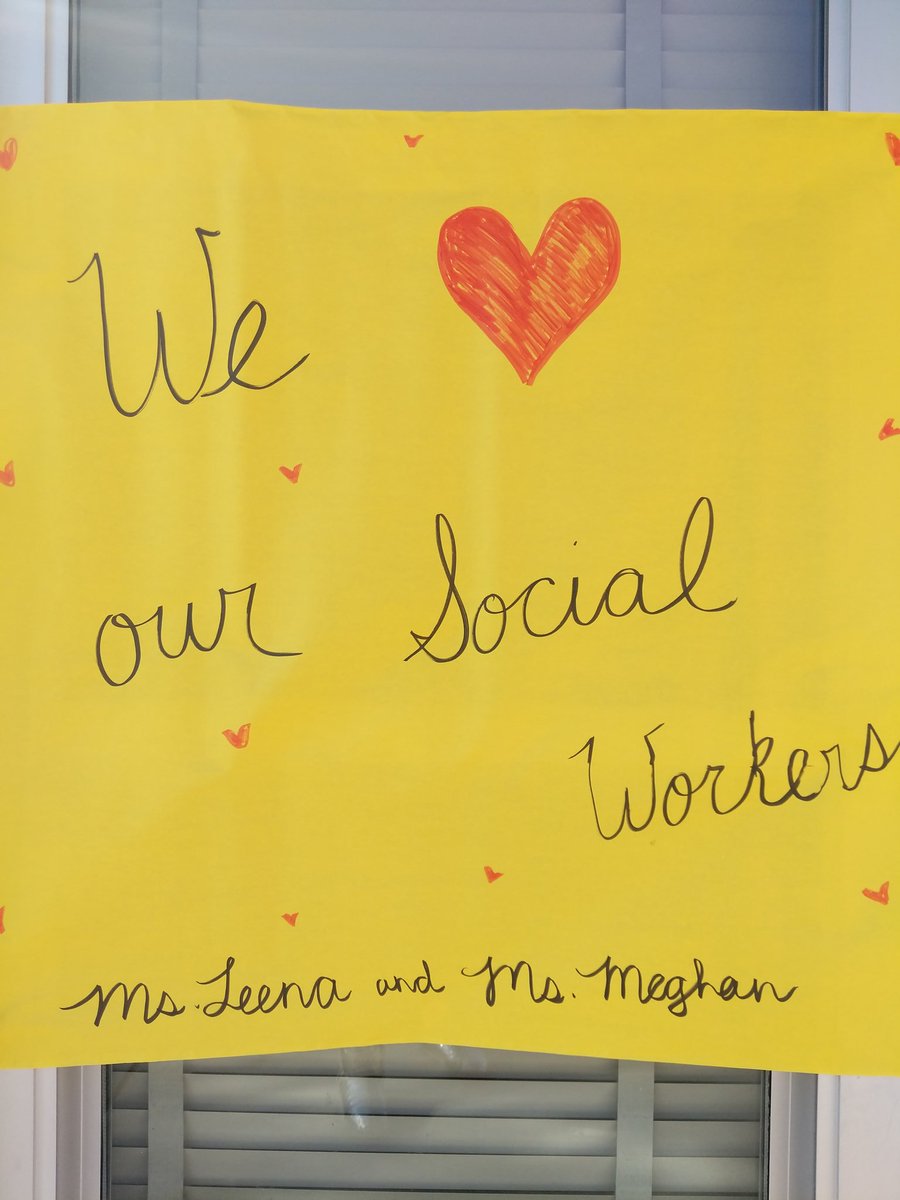 We
our Social
Workers
Ms. Leena and Ms. Meghan